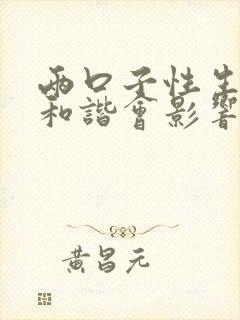 兩口子性生
和諧會影響
黃昌元